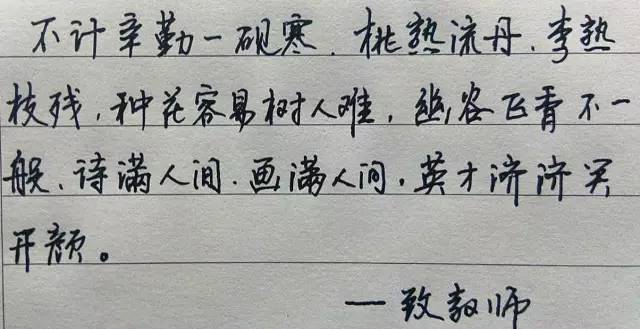 不计辛勤一砚寒.桃熟流丹.李熟
枝残，种花容易树人难，幽谷飞香不一
般、诗满人间.画满人间，英才济济笑
开颜。
一致教师